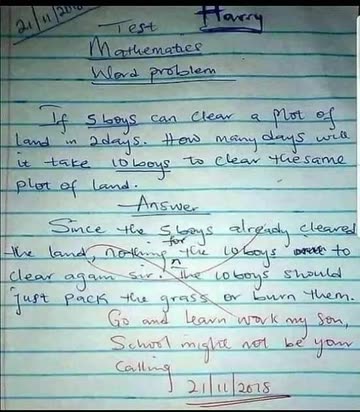 21/11/2018
Test Harry
Mathematics
Word problem
If 5boys can clear a plot of
land in 2days. How many days will
it take 10boys to clear the same
plot of land.
Answer
Since the 5boys already cleared
the land, nothing for the 10boys to
clear again sir. The 10boys should
just pack the grass or burn them.
Go and learn work my son,
School might not be your
calling
21/11/2018